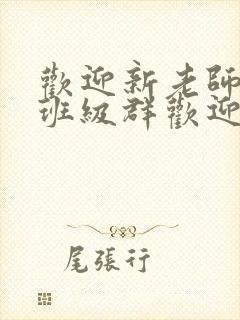 歡迎新老師
班級群歡迎
尾張行